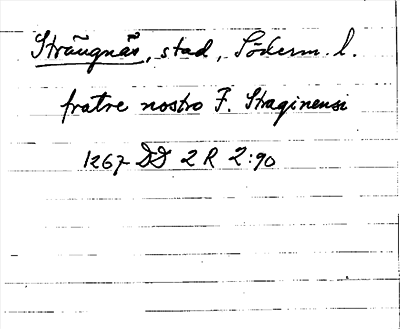 Strängnäs, stad, Söderm. l.
fratre nostro F. Straginensi
1267 DD 2 R 2:90